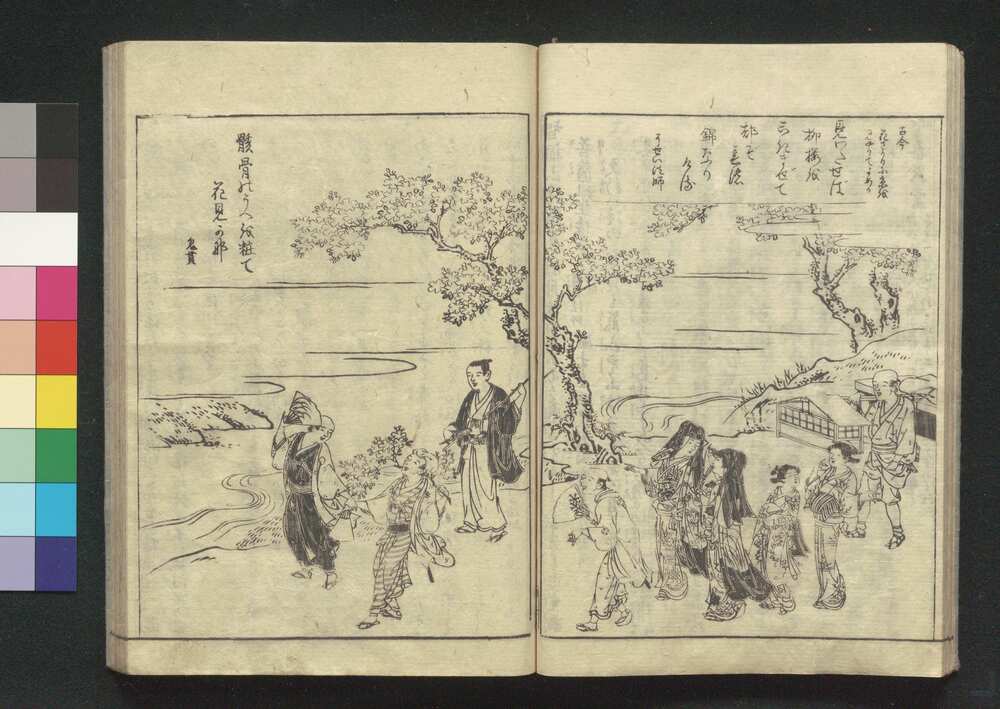 古今
花さかりに京を
みやりてよめる
見わたせは
柳桜を
こきませて
都そ
春の
錦なり
ける
そせい法師
骸骨のうへを粧て
花見かな
鬼貫